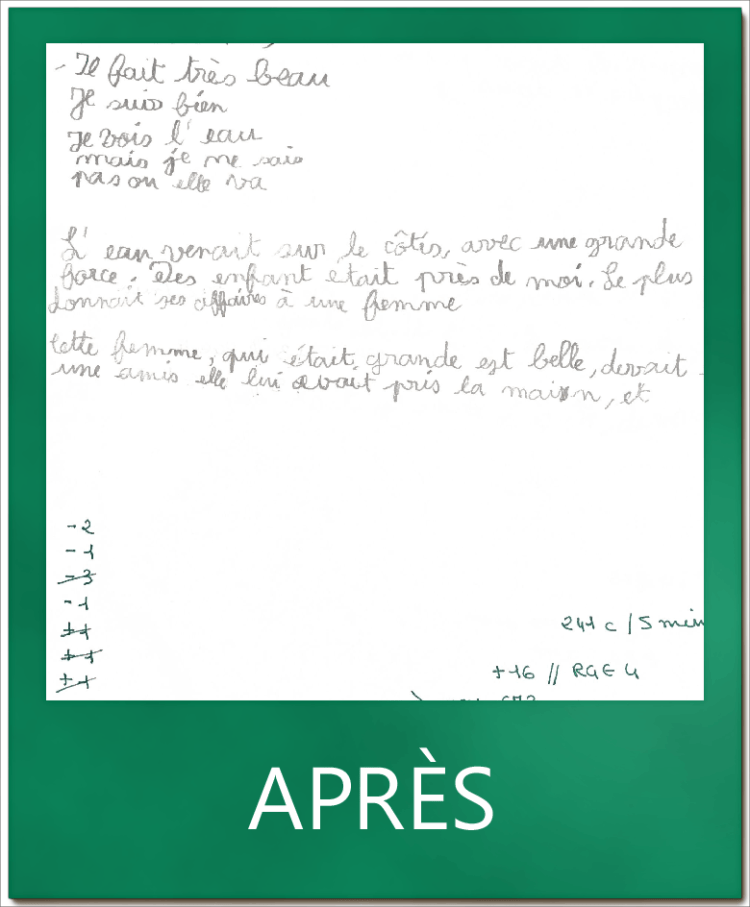 - Il fait très beau
Je suis bien
Je vois l'eau
mais je ne sais
pas ou elle va
L'eau venait sur le côtés, avec une grande
force. Des enfant etait près de moi. Le plus
donnait ses affaires à une femme
Cette femme, qui était grande est belle, devait
une amis elle lui avait pris la maison, et
-2
-1
-3
-1
++
++1
++
241 c / 5 min
+16 // RGE 4
APRÈS